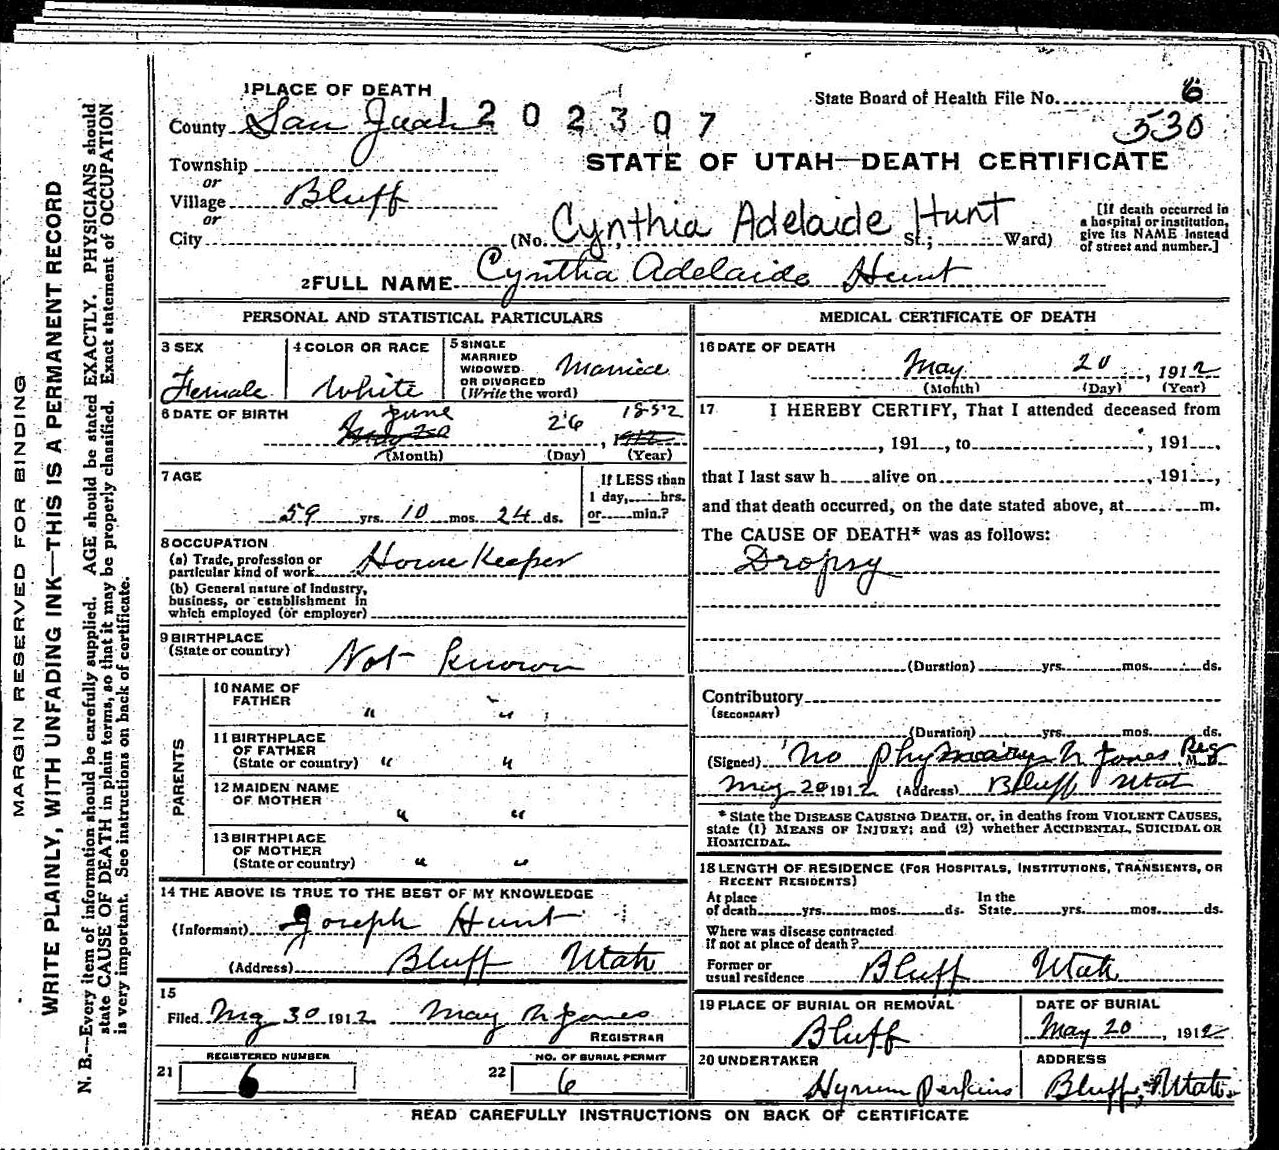 MARGIN RESERVED FOR BINDING
WRITE PLAINLY, WITH UNFADING INK—THIS IS A PERMANENT RECORD
N. B.—Every item of information should be carefully supplied. AGE should be stated EXACTLY. PHYSICIANS should
state CAUSE OF DEATH in plain terms, so that it may be properly classified. Exact statement of OCCUPATION
is very important. See instructions on back of certificate.
1 PLACE OF DEATH
County San Juan 1202307
Township
or
Village Bluff
or
City
State Board of Health File No. 6
530
STATE OF UTAH—DEATH CERTIFICATE
(No. Cynthia Adelaide Hunt St.; Ward)
[If death occurred in
a hospital or institution,
give its NAME instead
of street and number.]
2 FULL NAME Cyntha Adelaide Hunt
PERSONAL AND STATISTICAL PARTICULARS
3 SEX
Female
4 COLOR OR RACE
White
5 SINGLE
MARRIED
WIDOWED
OR DIVORCED
(Write the word)
Married
6 DATE OF BIRTH
June 26 1852
May 20, 1912
(Month) (Day) (Year)
7 AGE
59 yrs. 10 mos. 24 ds.
If LESS than
1 day, hrs.
or min.?
8 OCCUPATION
(a) Trade, profession or
particular kind of work House Keeper
(b) General nature of Industry,
business, or establishment in
which employed (or employer)
9 BIRTHPLACE
(State or country) Not Known
PARENTS
10 NAME OF
FATHER " "
11 BIRTHPLACE
OF FATHER
(State or country) " "
12 MAIDEN NAME
OF MOTHER " "
13 BIRTHPLACE
OF MOTHER
(State or country) " "
14 THE ABOVE IS TRUE TO THE BEST OF MY KNOWLEDGE
(Informant) Joseph Hunt
(Address) Bluff Utah
15
Filed May 30 1912 Mary N Jones
REGISTRAR
REGISTERED NUMBER
21 6
NO. OF BURIAL PERMIT
22 6
MEDICAL CERTIFICATE OF DEATH
16 DATE OF DEATH
May 20, 1912
(Month) (Day) (Year)
17 I HEREBY CERTIFY, That I attended deceased from
, 191 , to , 191 ,
that I last saw h alive on , 191 ,
and that death occurred, on the date stated above, at m.
The CAUSE OF DEATH* was as follows:
Dropsy
(Duration) yrs. mos. ds.
Contributory
(SECONDARY)
(Duration) yrs. mos. ds.
(Signed) No phy Mary N Jones Reg M. D.
May 20 1912 (Address) Bluff Utah
* State the DISEASE CAUSING DEATH, or, in deaths from VIOLENT CAUSES,
state (1) MEANS OF INJURY; and (2) whether ACCIDENTAL, SUICIDAL OR
HOMICIDAL.
18 LENGTH OF RESIDENCE (FOR HOSPITALS, INSTITUTIONS, TRANSIENTS, OR
RECENT RESIDENTS)
At place
of death yrs. mos. ds.
In the
State yrs. mos. ds.
Where was disease contracted
if not at place of death?
Former or
usual residence Bluff Utah
19 PLACE OF BURIAL OR REMOVAL
Bluff
DATE OF BURIAL
May 20, 1912
20 UNDERTAKER
Hyrum Perkins
ADDRESS
Bluff, Utah
READ CAREFULLY INSTRUCTIONS ON BACK OF CERTIFICATE